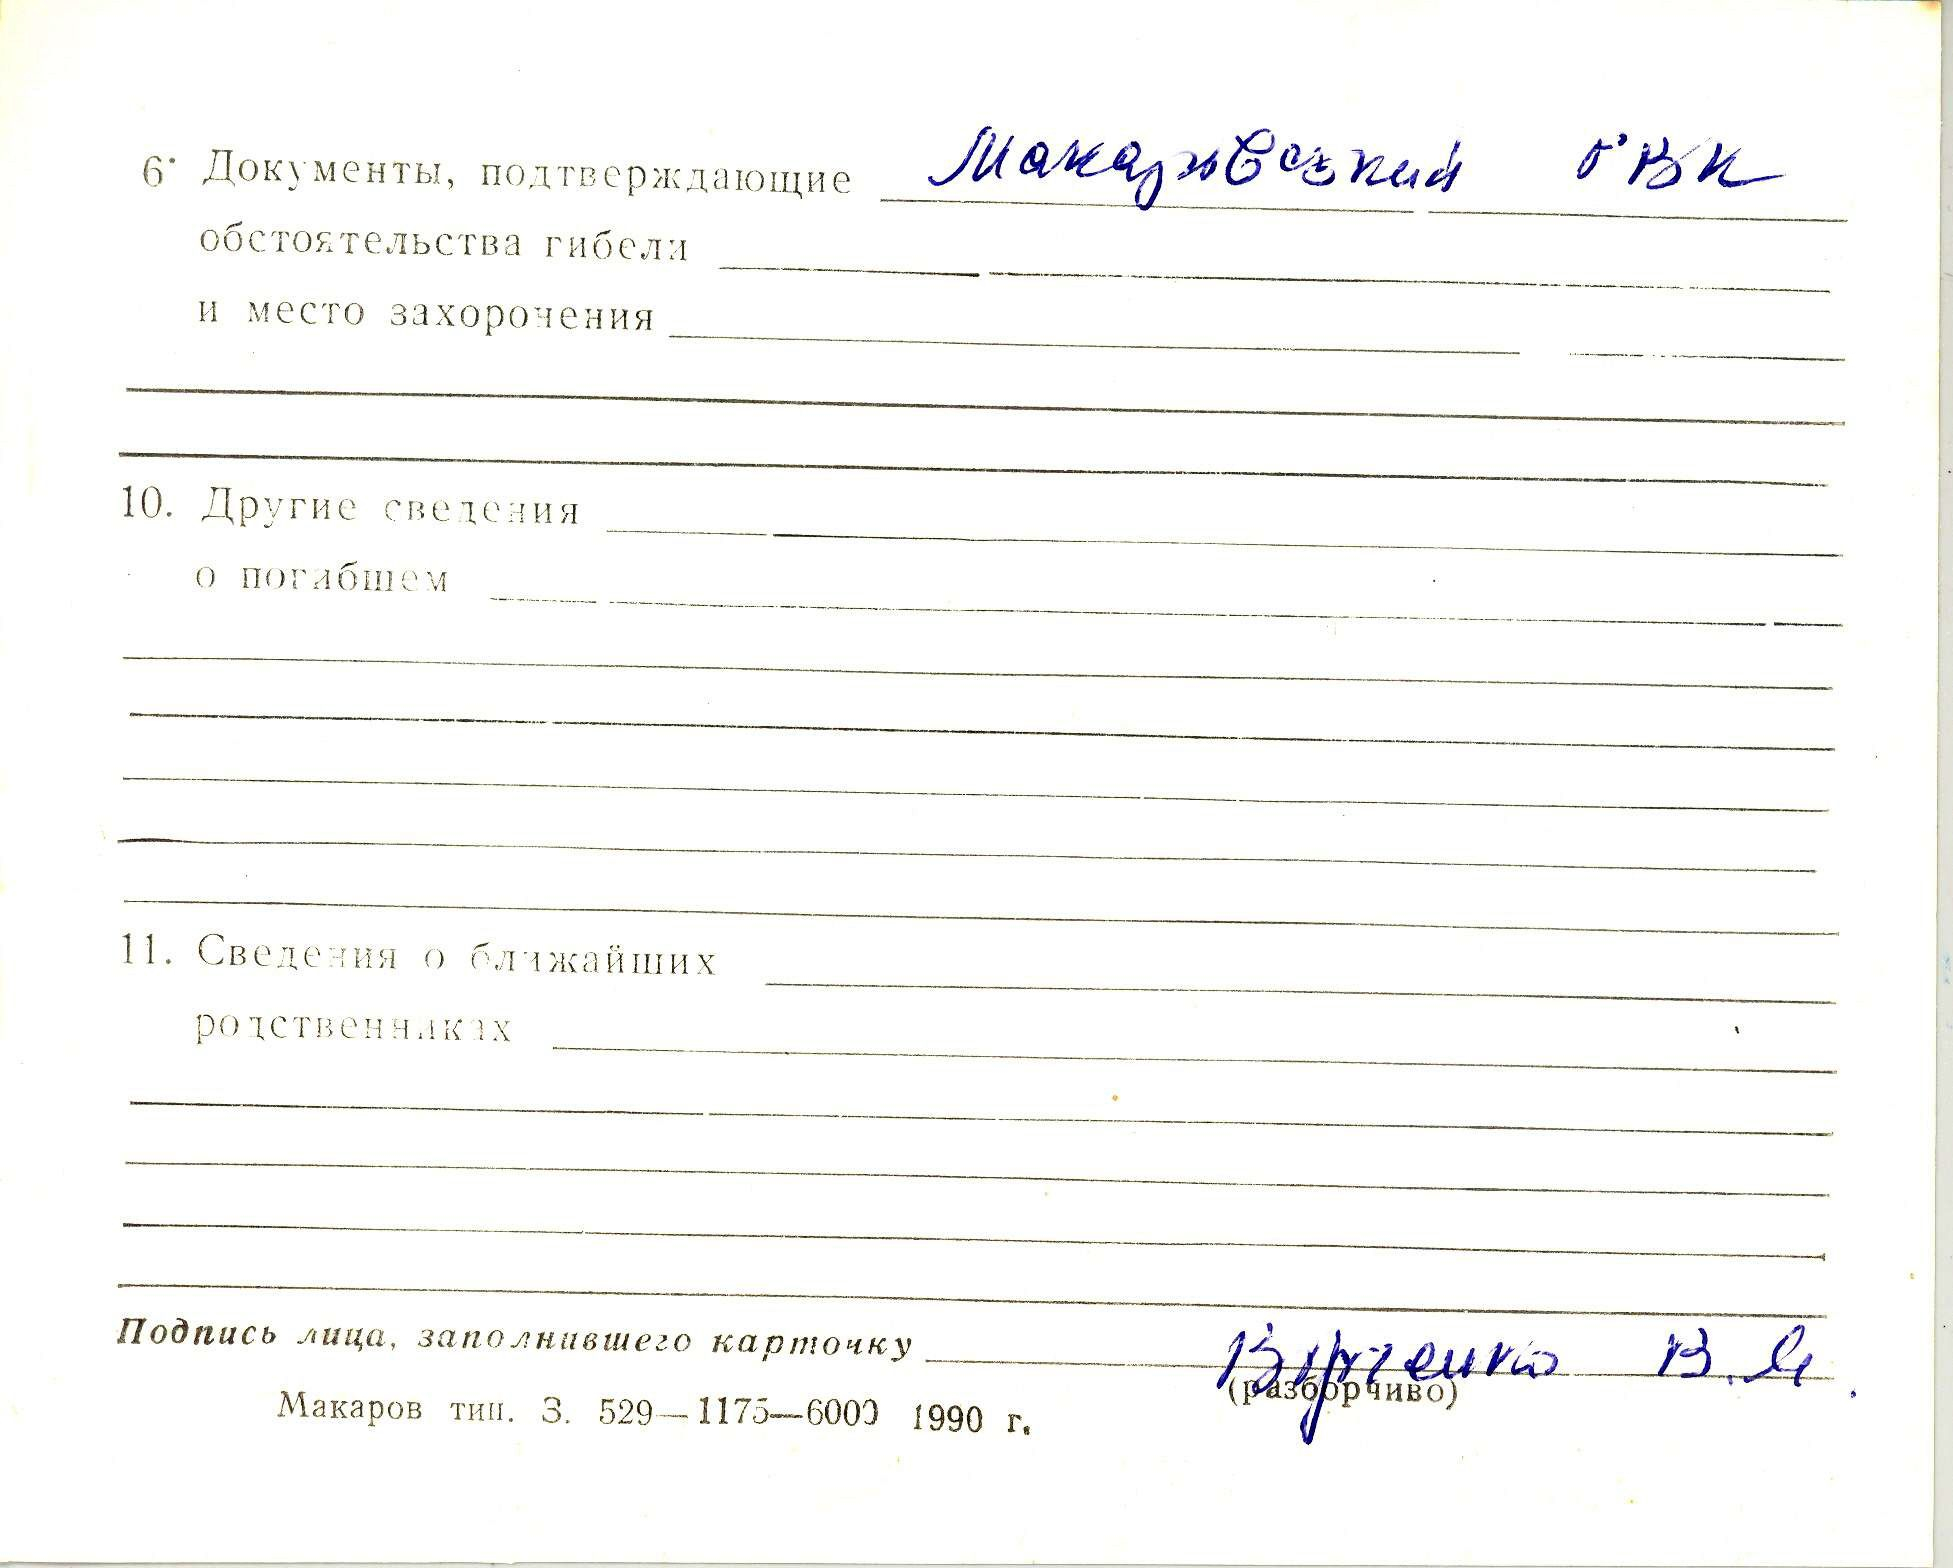 6. Документы, подтверждающие Макаровский РВК
обстоятельства гибели
и место захоронения
10. Другие сведения
о погибшем
11. Сведения о ближайших
родственниках
Подпись лица, заполнившего карточку В. Я.
(разборчиво)
Макаров тип. З. 529—1175—6000 1990 г.